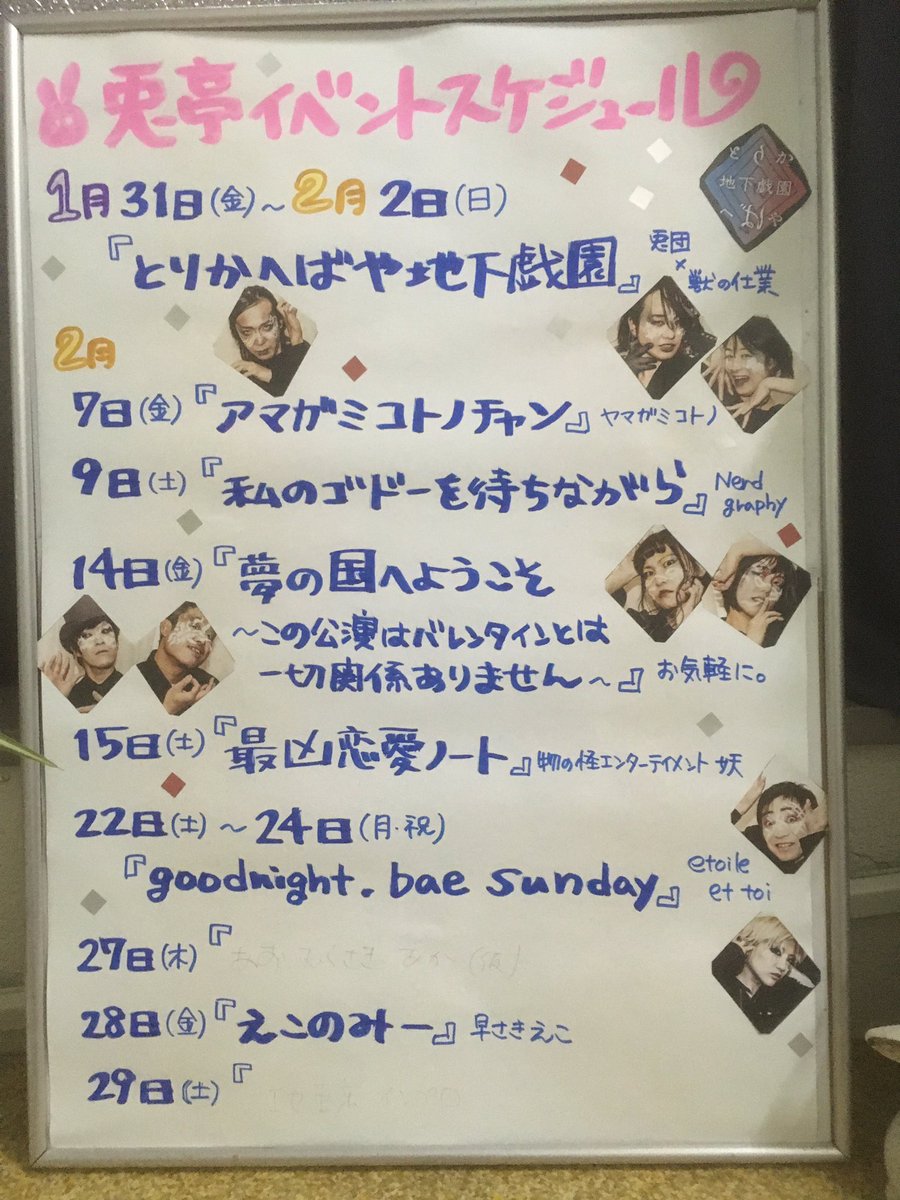 兎亭イベントスケジュール
とりか
地下戯園
へばや
1月31日(金)～2月2日(日)
『とりかへばや地下戯園』兎団×獣の仕業
2月
7日(金)『アマガミコトノチャン』ヤマガミコトノ
9日(土)『私のゴドーを待ちながら』Nerd graphy
14日(金)『夢の国へようこそ
～この公演はバレンタインとは
一切関係ありません～』お気軽に。
15日(土)『最凶恋愛ノート』物の怪エンターテイメント 妖
22日(土)～24日(月・祝)
『goodnight. bae sunday』etoile et toi
27日(木)『
28日(金)『えこのみー』早さきえこ
29日(土)『